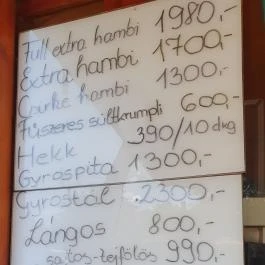 Full extra hambi 1980,-
Extra hambi 1700,-
Csirke hambi 1300,-
Fűszeres sültkrumpli 600,-
Hekk 390/10 dkg
Gyrospita 1300,-
Gyrostál 2300,-
Lángos 800,-
sajtos-tejfölös 990,-